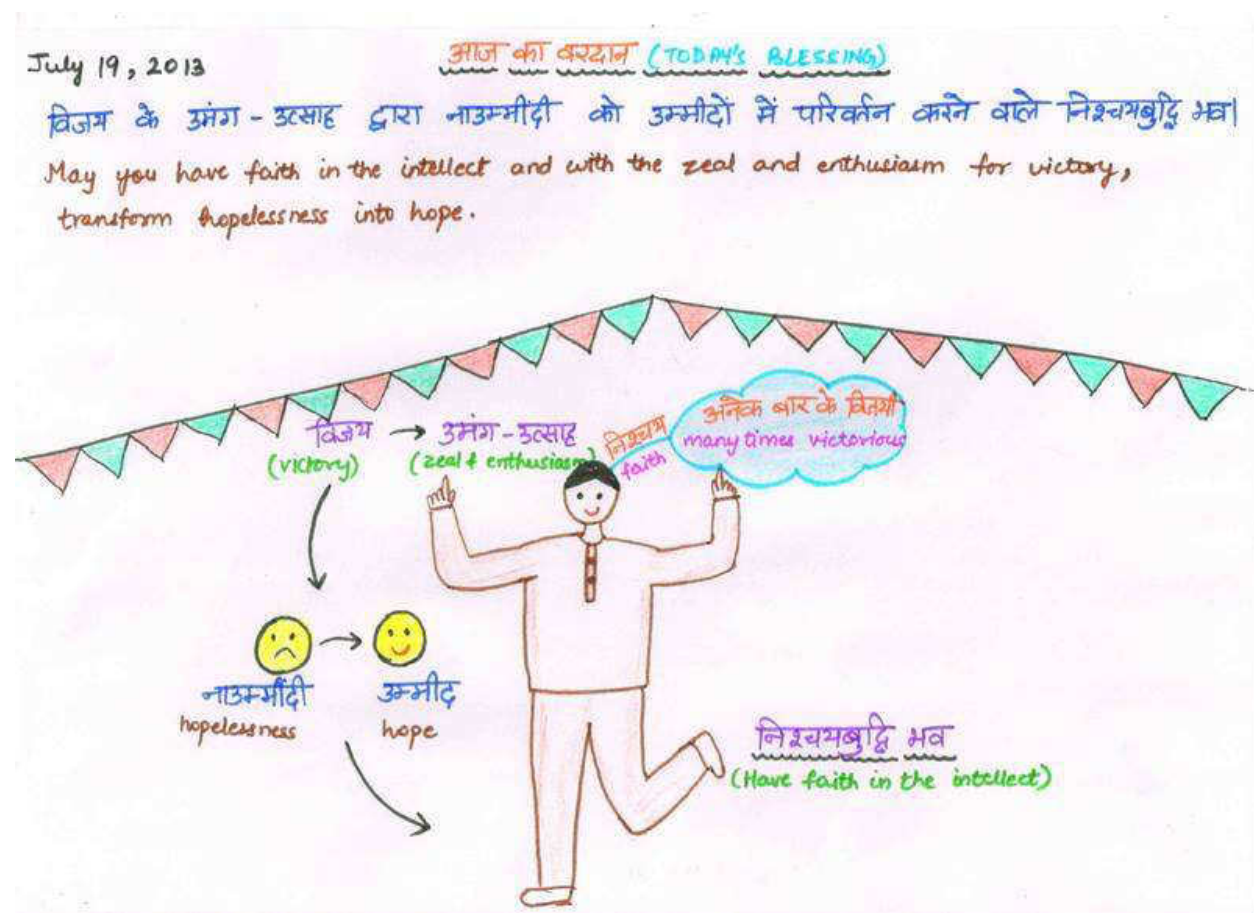 July 19, 2013
आज का वरदान (TODAY'S BLESSING)
विजय के उमंग - उत्साह द्वारा नाउम्मींदी को उम्मीदों में परिवर्तन करने वाले निश्चयबुद्धि भव।
May you have faith in the intellect and with the zeal and enthusiasm for victory,
transform hopelessness into hope.
विजय → उमंग - उत्साह
(victory) (zeal & enthusiasm)
निश्चय
faith
अनेक बार के विजयी
many times victorious
नाउम्मींदी उम्मीद
hopelessness hope
निश्चयबुद्धि भव
(Have faith in the intellect)